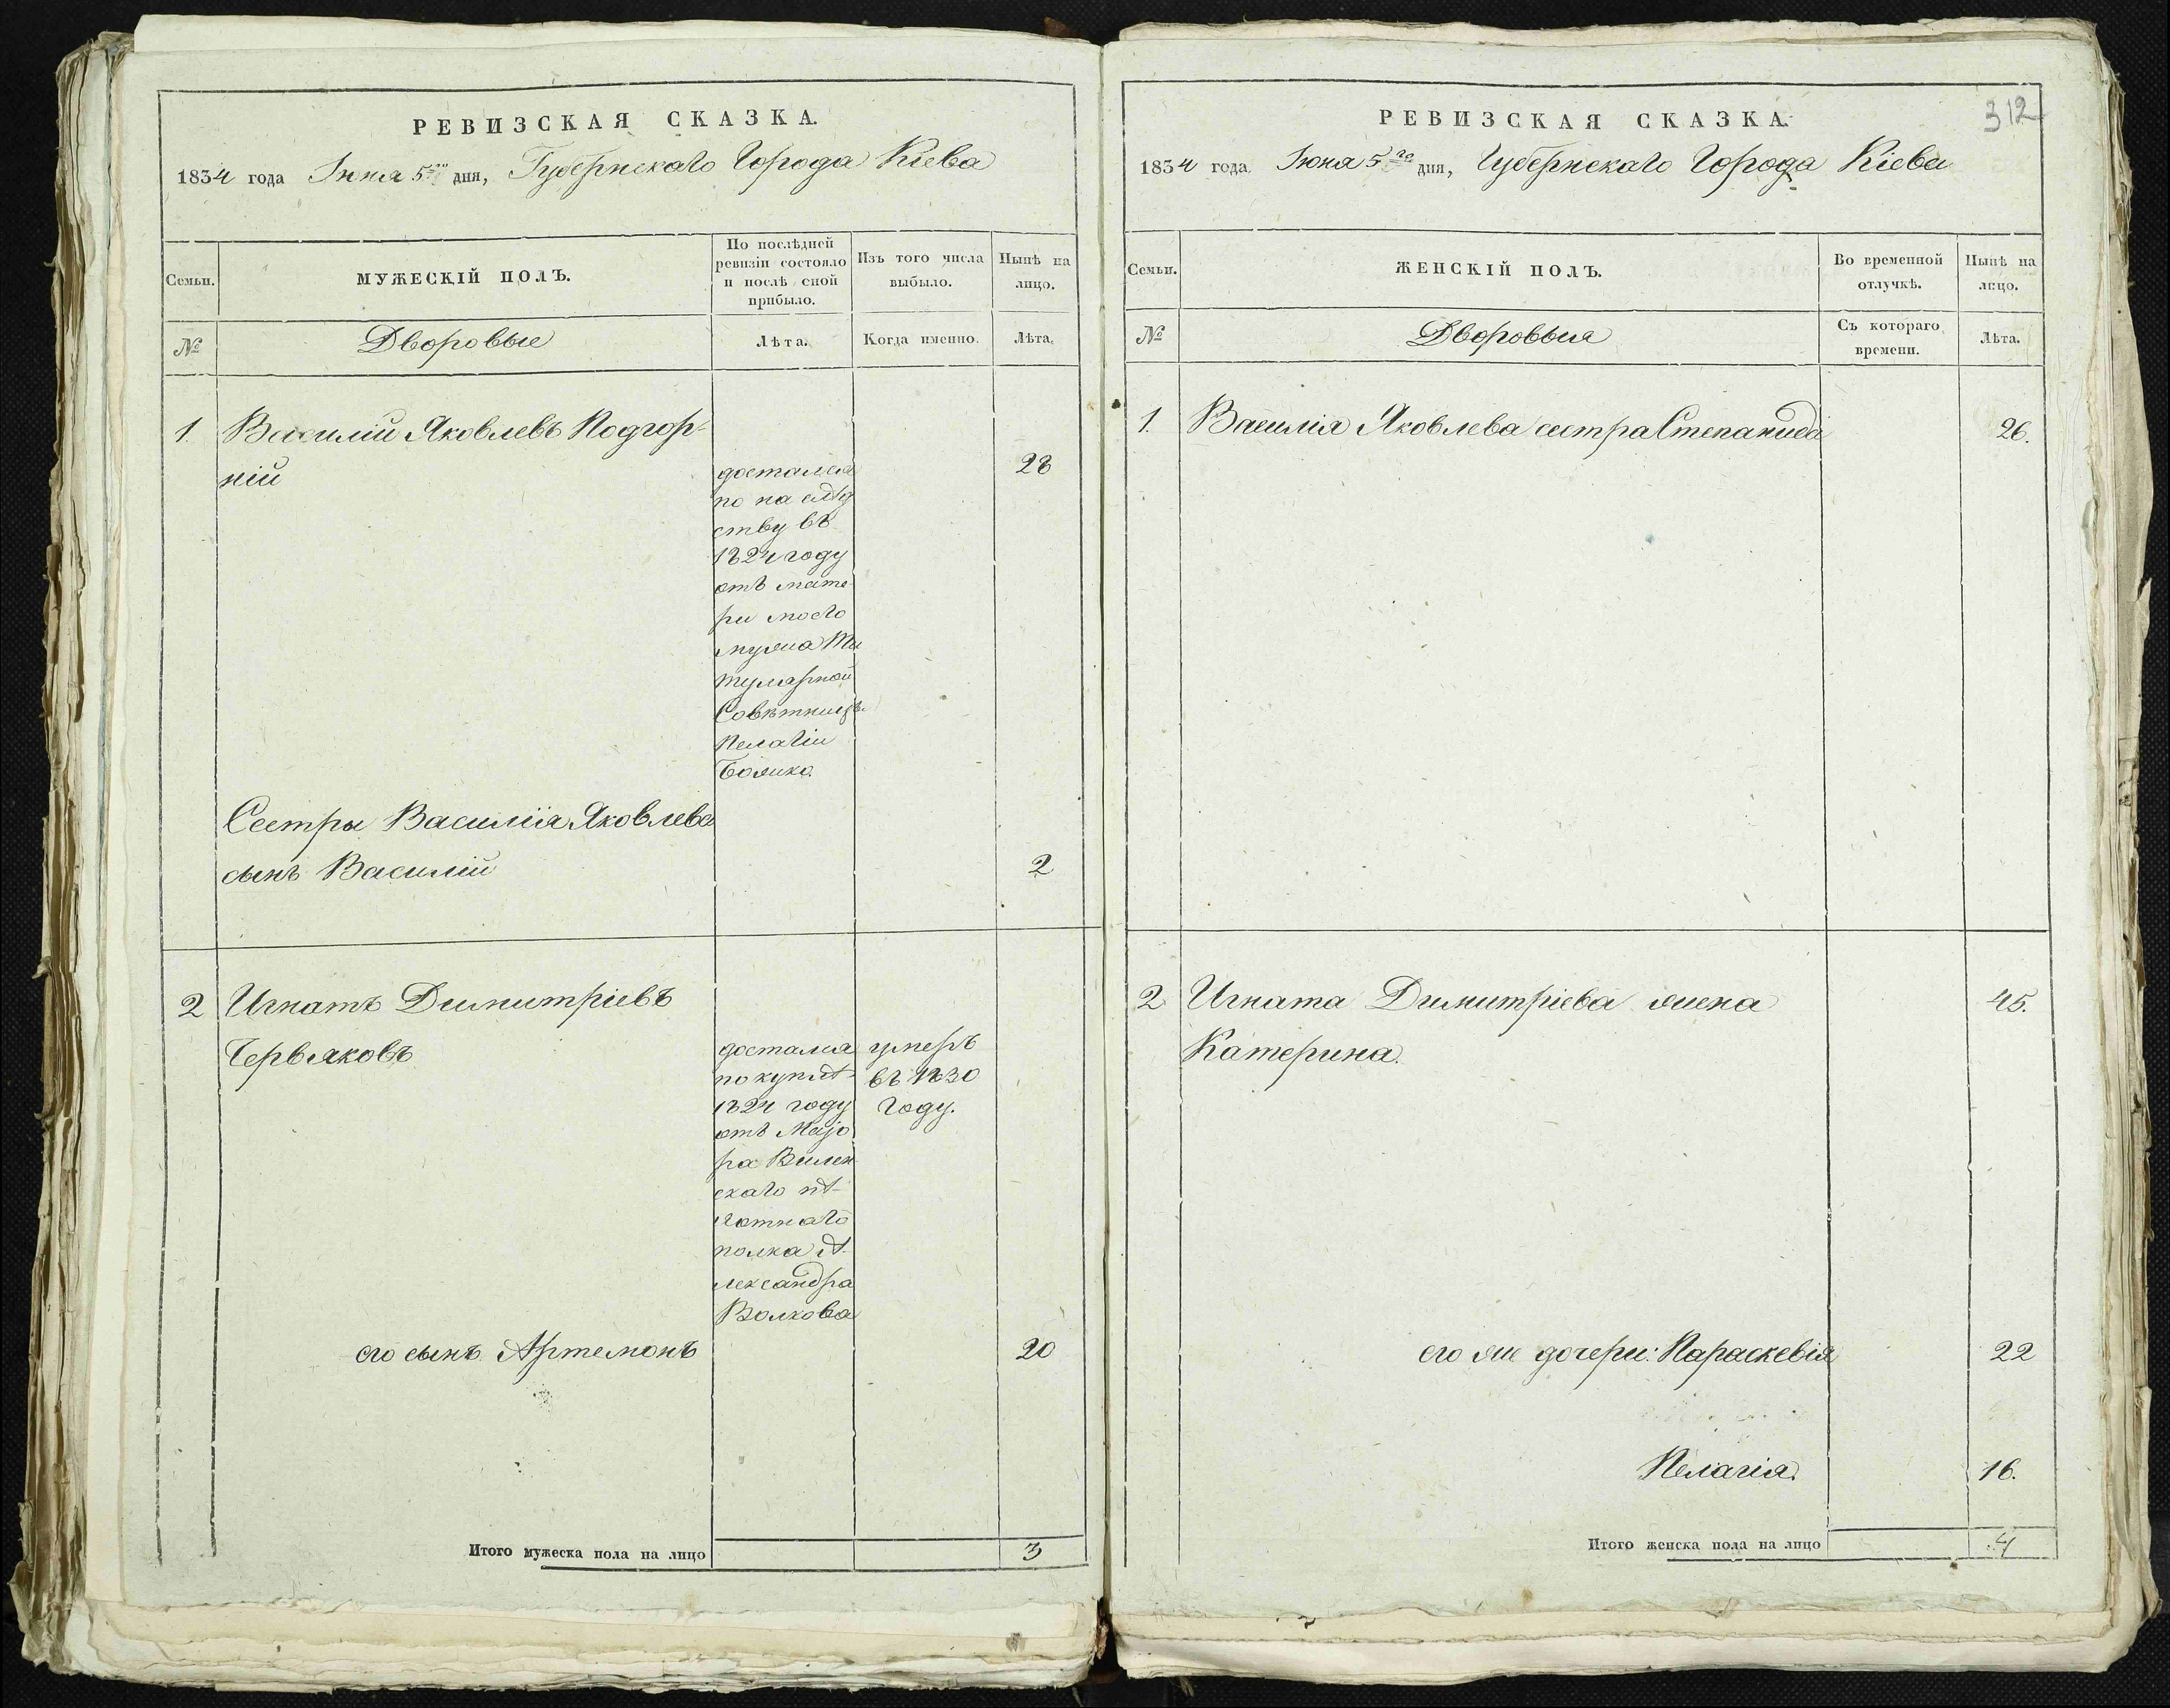 РЕВИЗСКАЯ СКАЗКА.
1834 года Іюня 5го дня, Губернскаго Города Кіева
Семьи.
МУЖЕСКІЙ ПОЛЪ.
По послѣдней
ревизіи состояло
и послѣ оной
прибыло.
Изъ того числа
выбыло.
Нынѣ на
лицо.
№
Дворовые
Лѣта.
Когда именно.
Лѣта.
1. Василій Яковлевъ Подгор-
ній
28
достался
по наслѣд
ству въ
1824 году
отъ мате
ри моего
мужа Ти
тулярной
Совѣтницы
Пелагіи
Божко.
Сестры Василія Яковлева
сынъ Василій
2
2 Игнатъ Димитріевъ
Червяковъ
достался
по куплѣ
1824 году
отъ Маіо
ра Вилен
скаго пѣ-
хотнаго
полка А-
лександра
Волкова
умеръ
въ 1830
году.
его сынъ Артемонъ
20
Итого мужеска пола на лицо
3
312
РЕВИЗСКАЯ СКАЗКА.
1834 года Іюня 5го дня, Губернскаго Города Кіева
Семьи.
ЖЕНСКІЙ ПОЛЪ.
Во временной
отлучкѣ.
Нынѣ на
лицо.
№
Дворовыя
Съ котораго
времени.
Лѣта.
1. Василія Яковлева сестра Степанида
26.
2 Игната Димитріева жена
45.
Катерина.
его же дочери: Параскевія
22
Пелагія.
16.
Итого женска пола на лицо
4